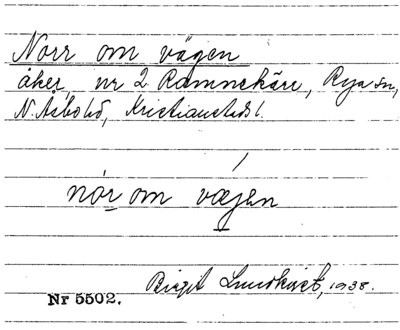 Norr om vägen
åker, nr 2 Ramnekärr, Rya sn,
N. Åsbo hd, Kristianstads l.
nór om væjen
Birgit Lundkvist, 1938.
Nr 5502.